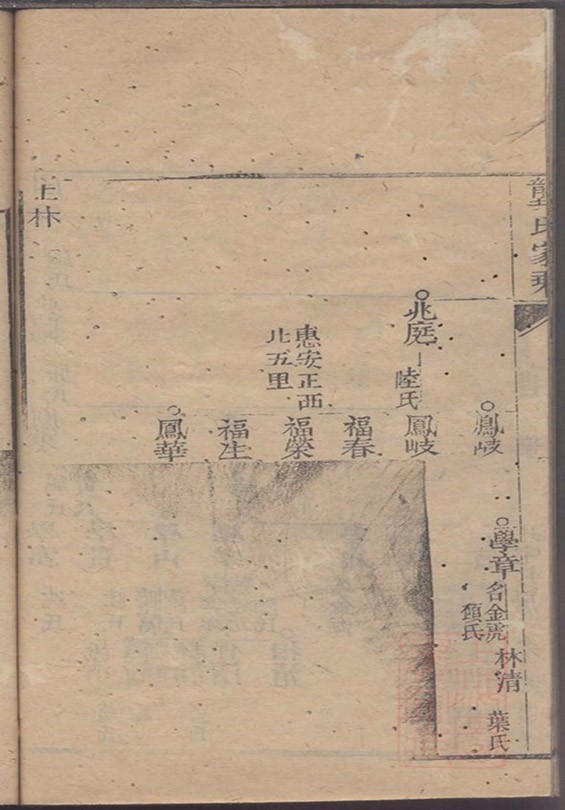 龔氏家乘
鳳岐
學章
名金虎
顧氏
林清
葉氏
兆庭
陸氏
鳳岐
福春
惠安正西
北五里
福榮
福生
鳳華
上林